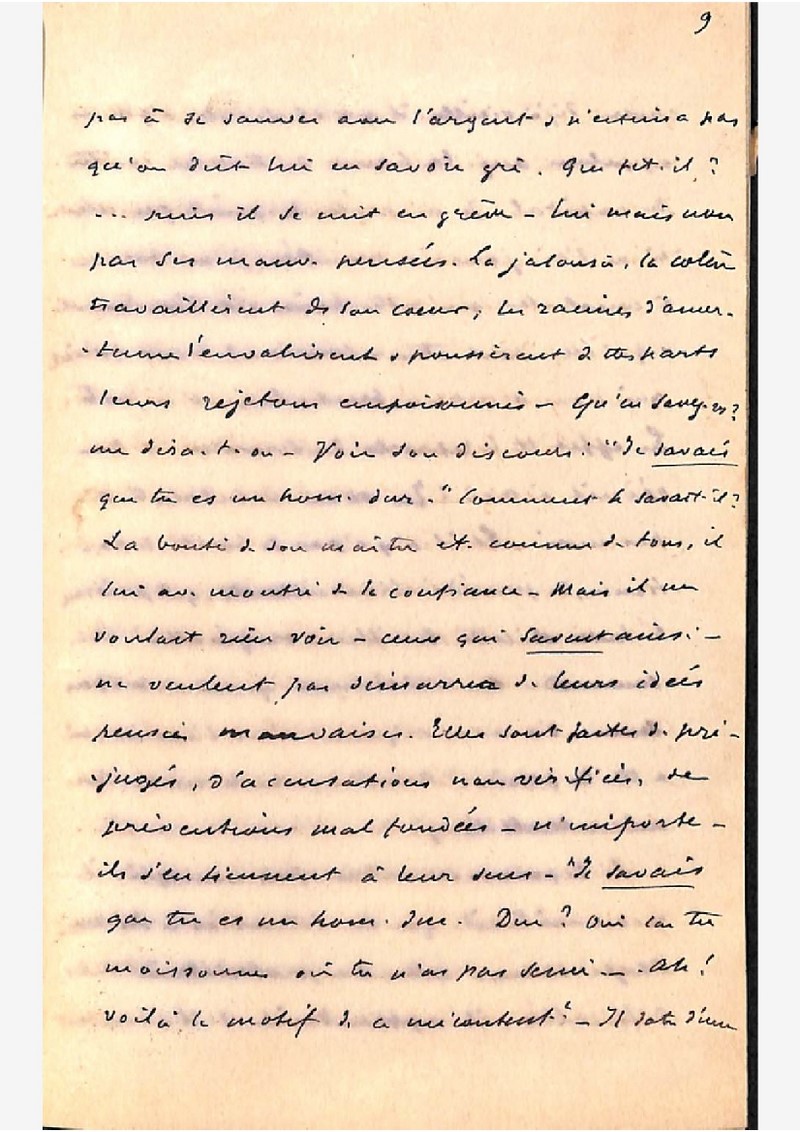 9
pas à se sauver avec l'argent & n'estima pas
qu'on dût lui en savoir gré. Que fit-il?
... puis il se mit en grève - lui mais non
pas ses mauv. pensées. La jalousie, la colère
travaillèrent ds son coeur, les racines d'amer-
-tume l'envahirent & poussèrent de ttes parts
leurs rejetons empoisonnés - Qu'en savez-vs?
me dira-t-on - Voir son discours: "Je savais
que tu es un hom. dur." Comment le savait-il?
La bonté de son maître ét. connue de tous, il
lui av. montré de la confiance - Mais il ne
voulait rien voir - ceux qui savent ainsi -
ne veulent pas démarrer de leurs idées
pensées mauvaises. Elles sont faites de pré-
-jugés, d'accusations non vérifiées, de
préventions mal fondées - n'importe -
ils s'en tiennent à leur sens - "Je savais
que tu es un hom. dur. Dur? Oui car tu
moissonnes où tu n'as pas semé -. Ah!
voilà le motif de ce mécontentt - Il date d'une